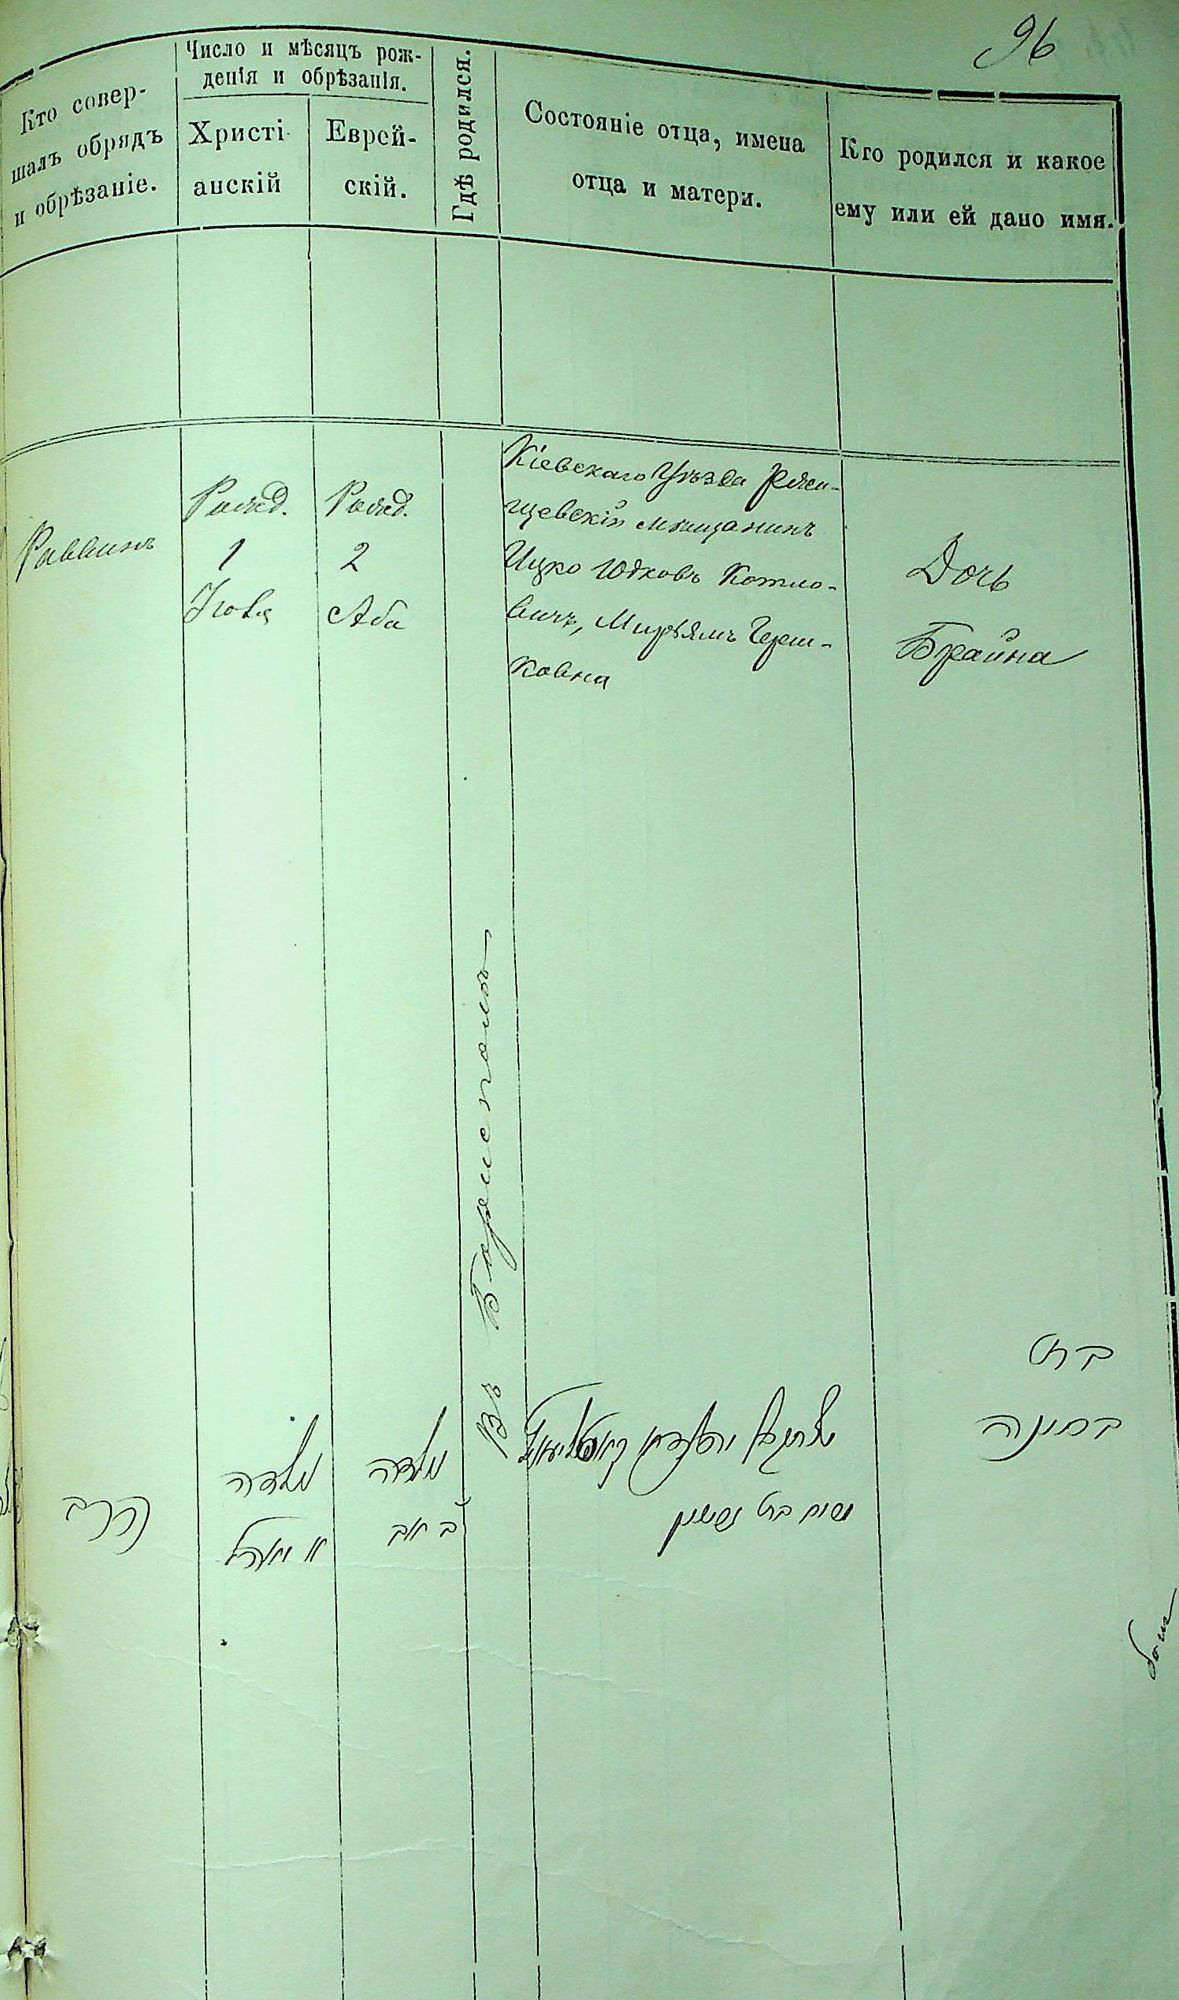 96
Кто совер-
шалъ обрядъ
и обрѣзаніе.
Число и мѣсяцъ рож-
денія и обрѣзанія.
Христі-
анскій
Еврей-
скій.
Гдѣ родился.
Состояніе отца, имена
отца и матери.
Кто родился и какое
ему или ей дано имя.
Раввинъ
Рожд.
1
Іюля
Рожд.
2
Аба
Въ Борисполѣ
Кіевскаго Уѣзда Ржи-
щевскій мѣщанинъ
Ицко Юдковъ Котло-
вичъ, Мирьямъ Герш-
ковна
Дочь
Брайна
הרב
נולדה
נולדה
ב אב
ברת
בריינה